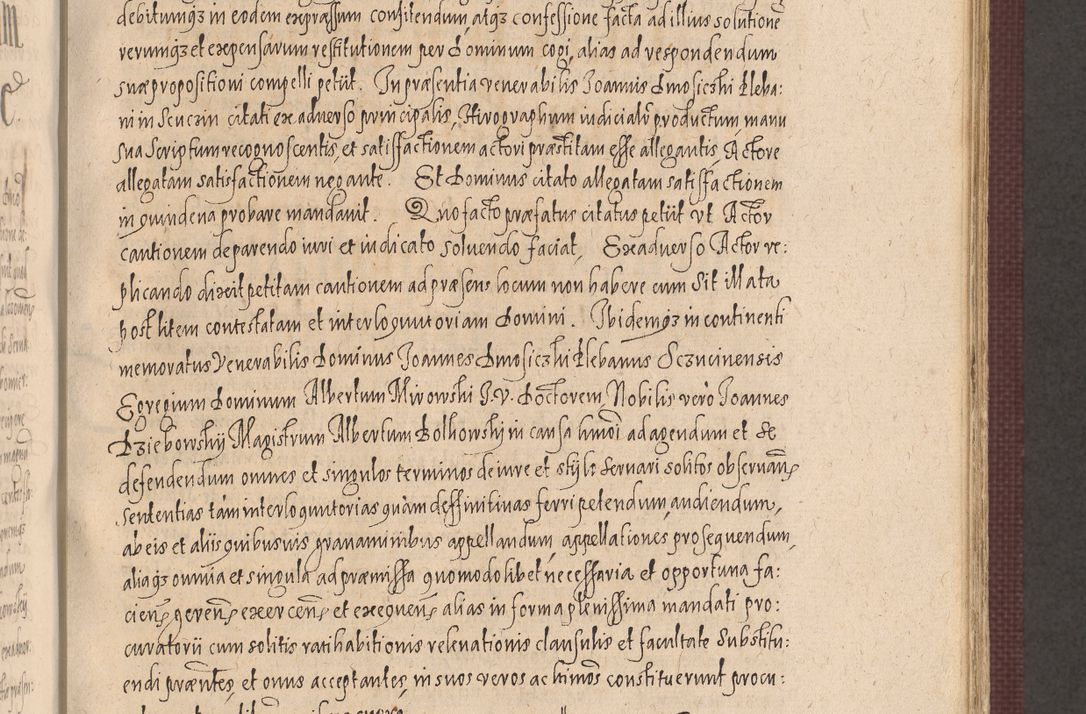 debitumqz in eodem expressum confitendum, atqz confessione facta ad illius solutione
verumqz et expensarum restitutionem per Dominum cogi, alias ad respondendum
suæ propositioni compelli petiit. In præsentia venerabilis Joannis Dmosiczki Pleba:
ni in Sczuczin citati ex adverso principalis, Hirographum iudicialr productum, manu
sua scriptum recognoscentis, et satisfactionem actori præstitam esse allegantis, Actore
allegatam satisfactionem negante. Et Dominus citato allegatam satisfactionem
in quindena probare mandavit. Quo facto præfatus citatus petiit vt Actor
cautionem de parendo iuri et iudicato soluendo faciat, Exadverso Actor re:
plicando dixit petitam cautionem ad præsens locum non habere cum sit Mata
post litem contestatam et interloquutoriam Domini. Ibidemqz in continenti
memoratus Venerabilis Dominus Joannes Dmosiczki Plebanus Sczucinensis
Egregium Dominum Albertum Mirowski J.V. Doctorem, Nobilis verò Joannes
Dziebowskij Magistrum Albertum Bolkowskij in causa hmoi ad agendum et se
defendendum omnes et singulos terminos de iure et stylo servari solitos observan
sententias tàm interloquutorias quàm deffinitivas ferri petendum, audiendum,
ab eis et aliis quibusuis gravaminibus appellandum, appellationes prosequendum,
aliaqz omnia et singula ad præmissa quomodolibet necessaria et opportuna fa:
cien geren exercen et exequen alias in forma plenissima mandati pro:
curatorii cum solitis ratihabitionis relevationis clausulis et facultate substitu:
endi præntes, et onus acceptantes, in suos veros ac ltimos constituerunt procu: